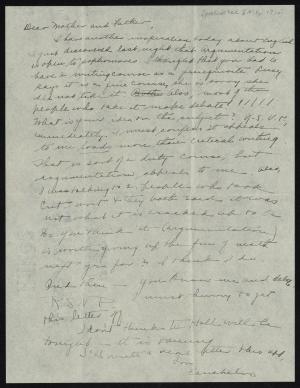 Dear Mother and Father,
I have another inspiration today about English
I just discovered last night that argumentation
is open to sophomores. I thought that you had to
have a writing course as a prerequisite. Lucy
says it is a fine course, she is sorry she
did not did it. Also, most of the
people who take it make debate!!!!!!
What is your idea on the subject? If - S.V.P.
immediately. I must confess it appeals
to me loads more than critical writing
That is sort of a duty course, but
argumentation appeals to me. Also,
I was talking to 2 people who took
Crit. & they both said it was
not what it is cracked up to be
Do you think it (argumentation)
is worth giving up the fun of math
next year for? I think I do.
you know me and
must hurry to get
this letter off
I don't think Holl will be
tonight - it is raining
I'll write a real letter this aft.
Love